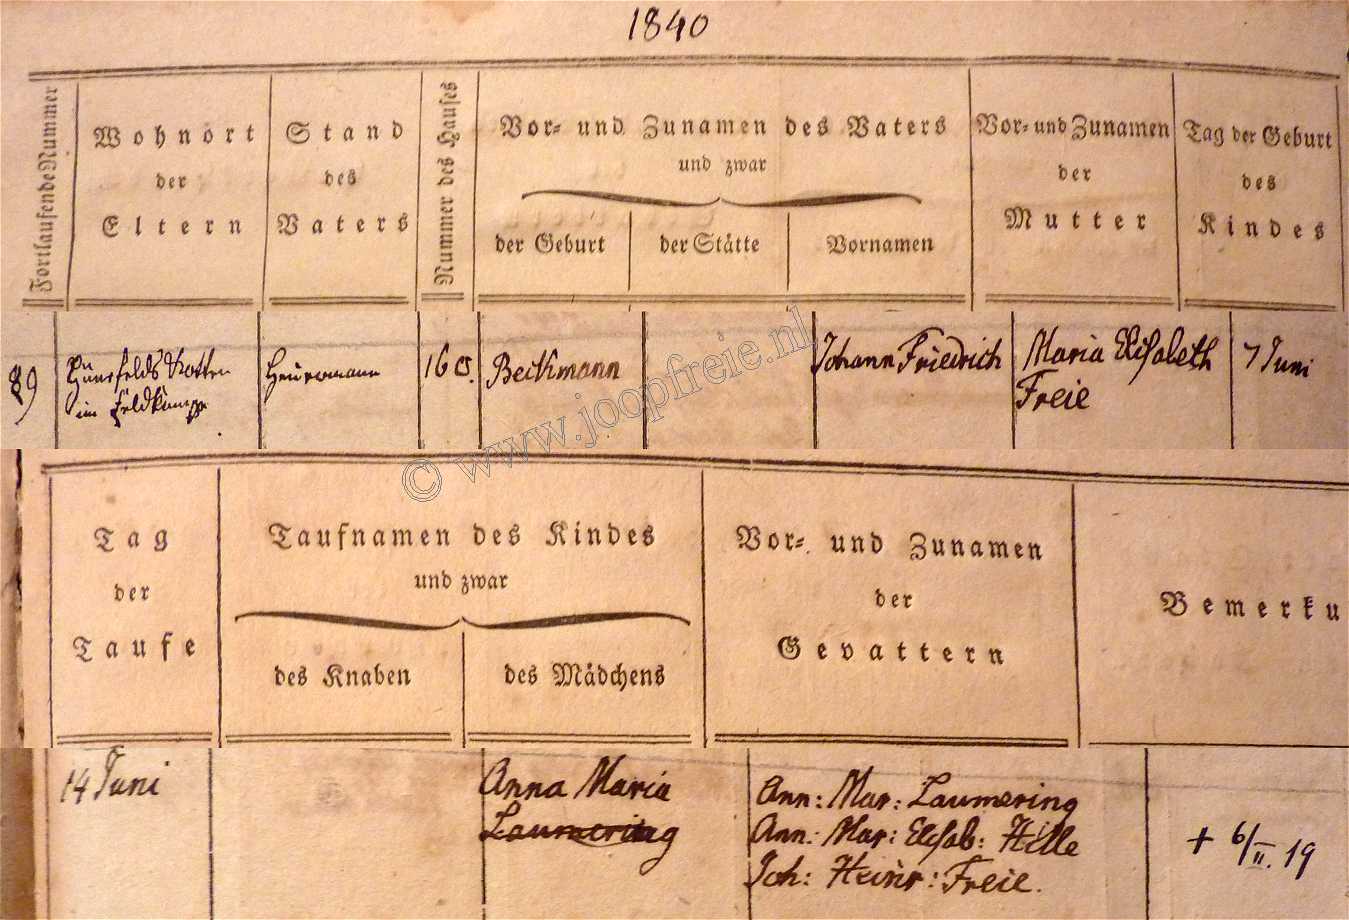 1840
Fortlaufende Nummer
Wohnort
der
Eltern
Stand
des
Vaters
Nummer des Hauses
Vor- und Zunamen des Vaters
und zwar
der Geburt
der Stätte
Vornamen
Vor- und Zunamen
der
Mutter
Tag der Geburt
des
Kindes
89
im Feldkampe
Heuermann
16
Beckmann
Johann Friedrich
Maria Elisabeth
Freie
7 Juni
© www.joopfreie.nl
Tag
der
Taufe
Taufnamen des Kindes
und zwar
des Knaben
des Mädchens
Vor- und Zunamen
der
Gevattern
Bemerku
14 Juni
Anna Maria
Laumering
Ann: Mar: Laumering
Ann: Mar: Elisab: Hille
Joh: Heinr: Freie.
+ 6/II. 19